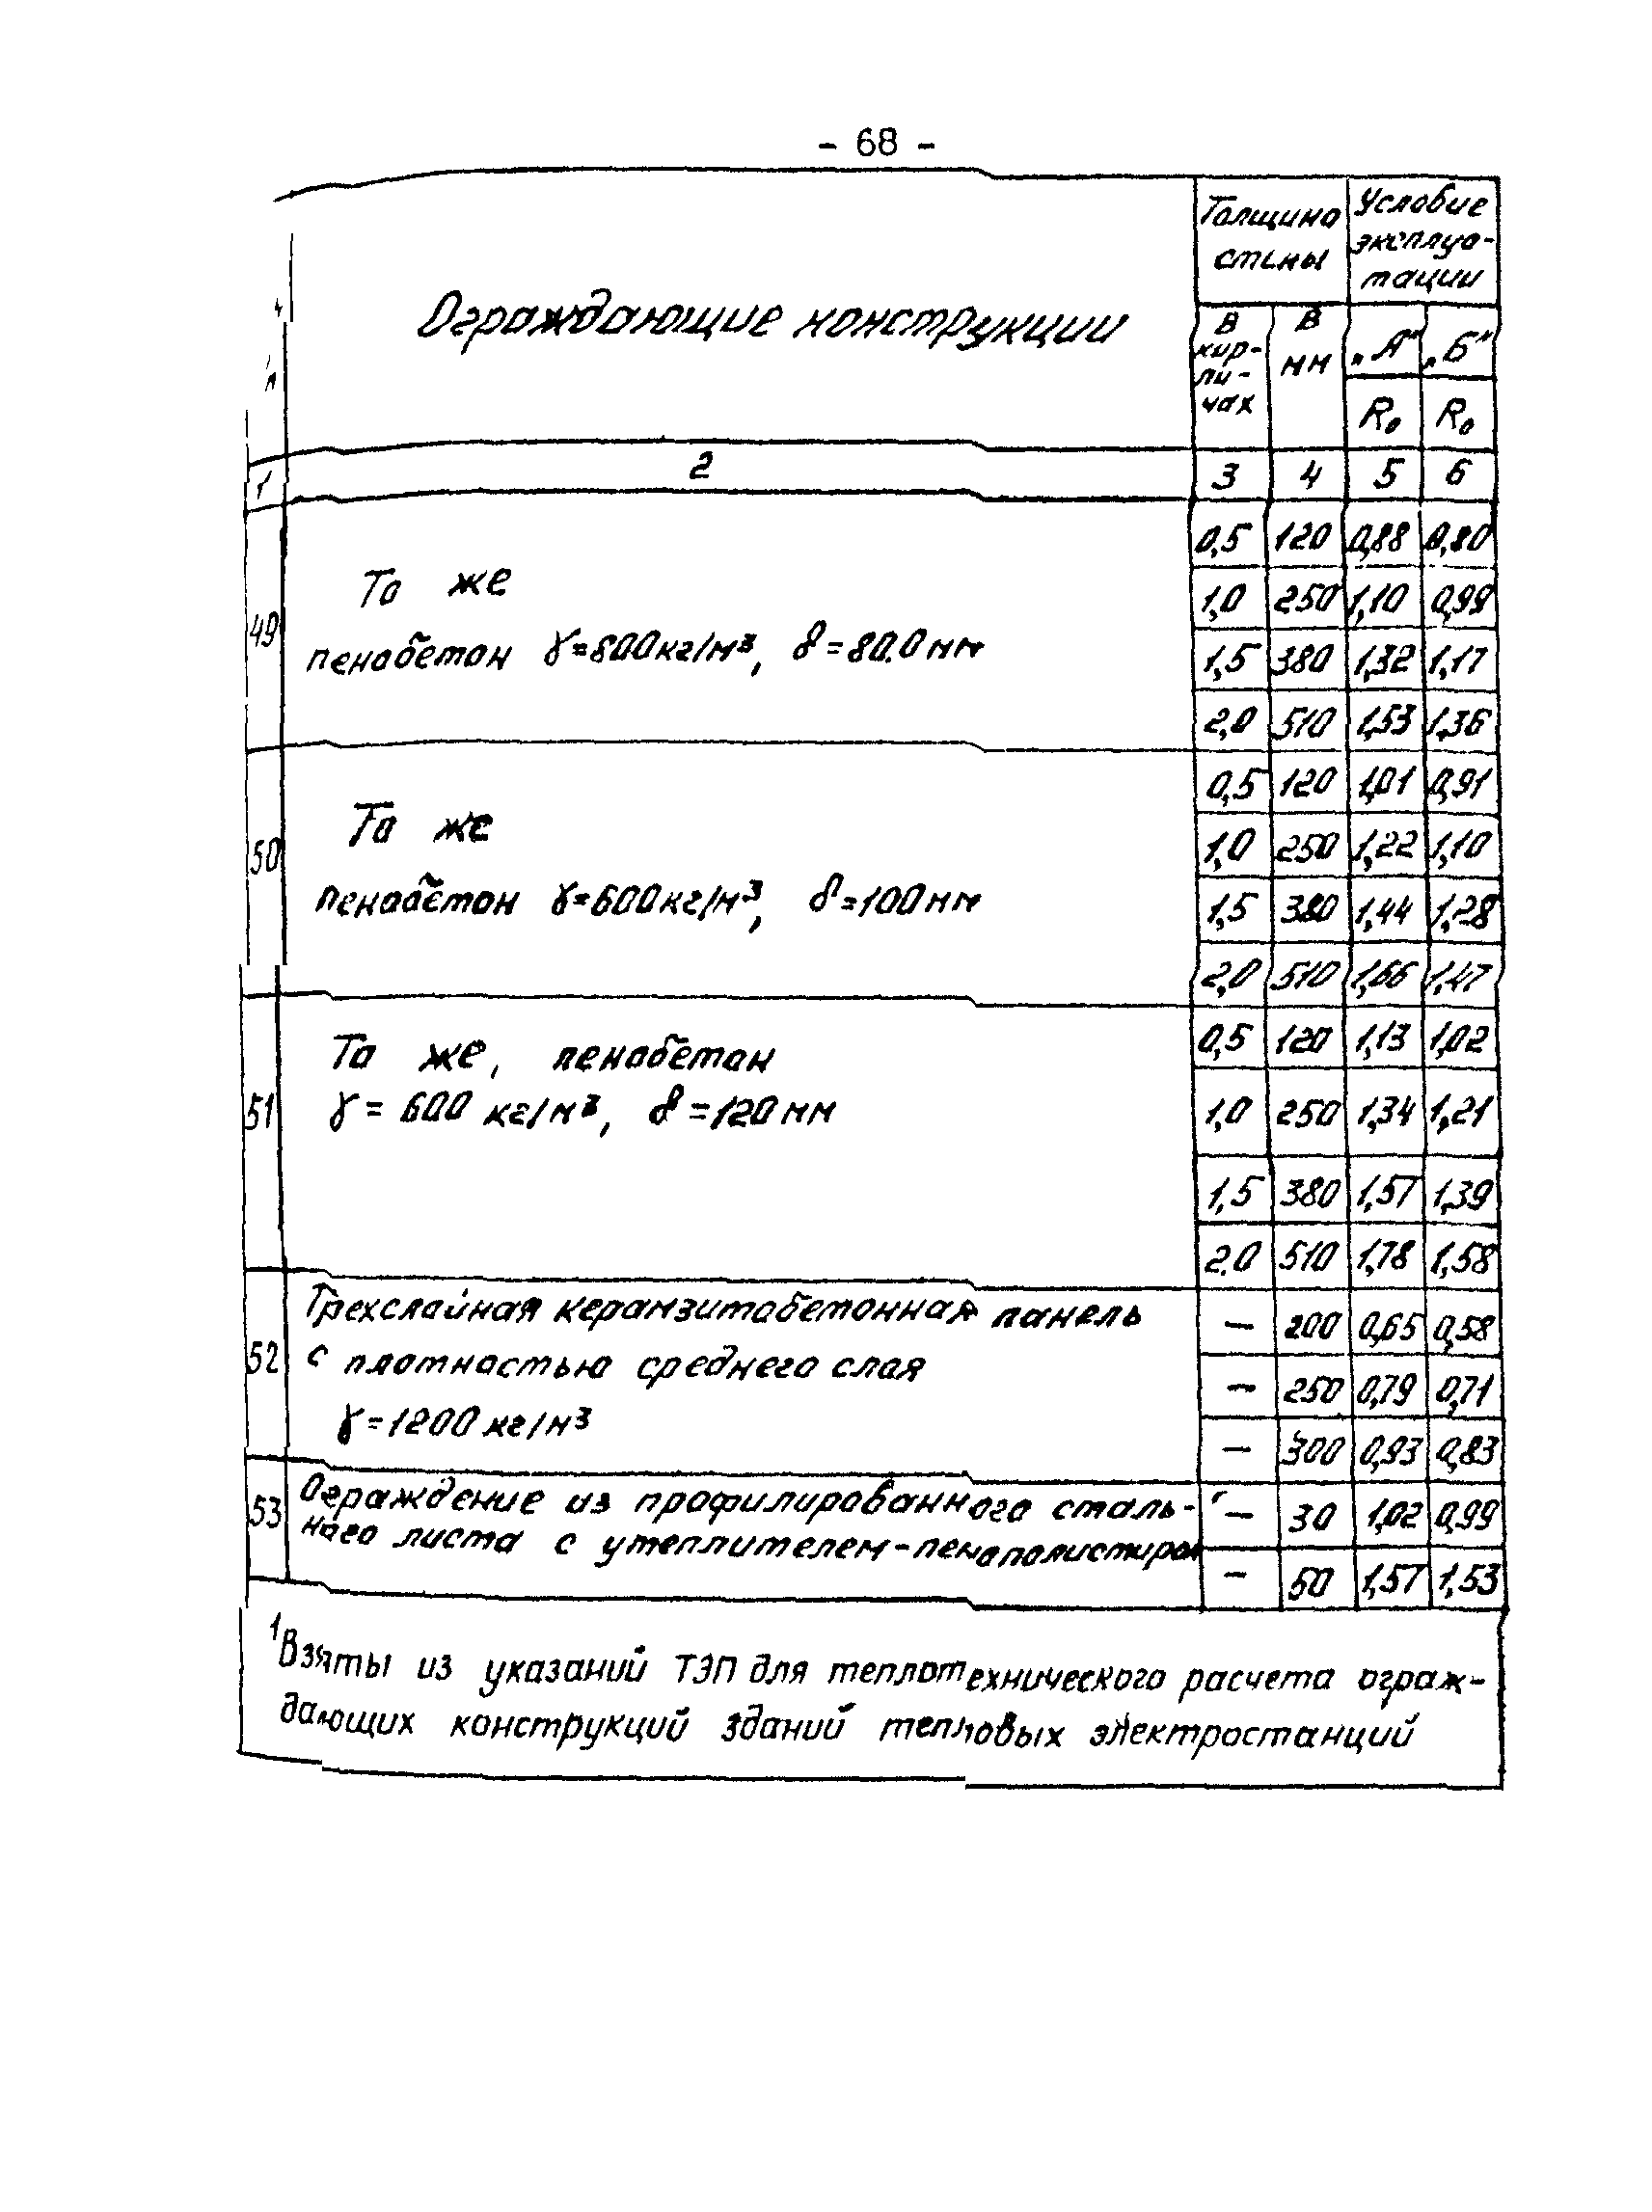 - 68 -
Толщина
стены
Условие
эксплуа-
тации
Ограждающие конструкции
В
кир-
пи-
чах
В
мм
„А“ „Б“
R₀ R₀
1 2 3 4 5 6
0,5 120 0,88 0,80
То же
1,0 250 1,10 0,99
49
пенобетон γ=600кг/м³, δ=80.0 мм
1,5 380 1,32 1,17
2,0 510 1,53 1,36
0,5 120 1,01 0,91
То же
1,0 250 1,22 1,10
50
пенобетон γ=600кг/м³, δ=100 мм
1,5 380 1,44 1,28
2,0 510 1,66 1,47
То же, пенобетон
0,5 120 1,13 1,02
51
γ= 600 кг/м³, δ=120 мм
1,0 250 1,34 1,21
1,5 380 1,57 1,39
2.0 510 1,78 1,58
Трехслойная керамзитобетонная панель
— 200 0,65 0,58
52 с плотностью среднего слоя
— 250 0,79 0,71
γ=1200 кг/м³
— 300 0,93 0,83
53 Ограждение из профилированного сталь-
— 30 1,02 0,99
ного листа с утеплителем-пенополистирол
— 50 1,57 1,53
¹Взяты из указаний ТЭП для теплотехнического расчета ограж-
дающих конструкций зданий тепловых электростанций